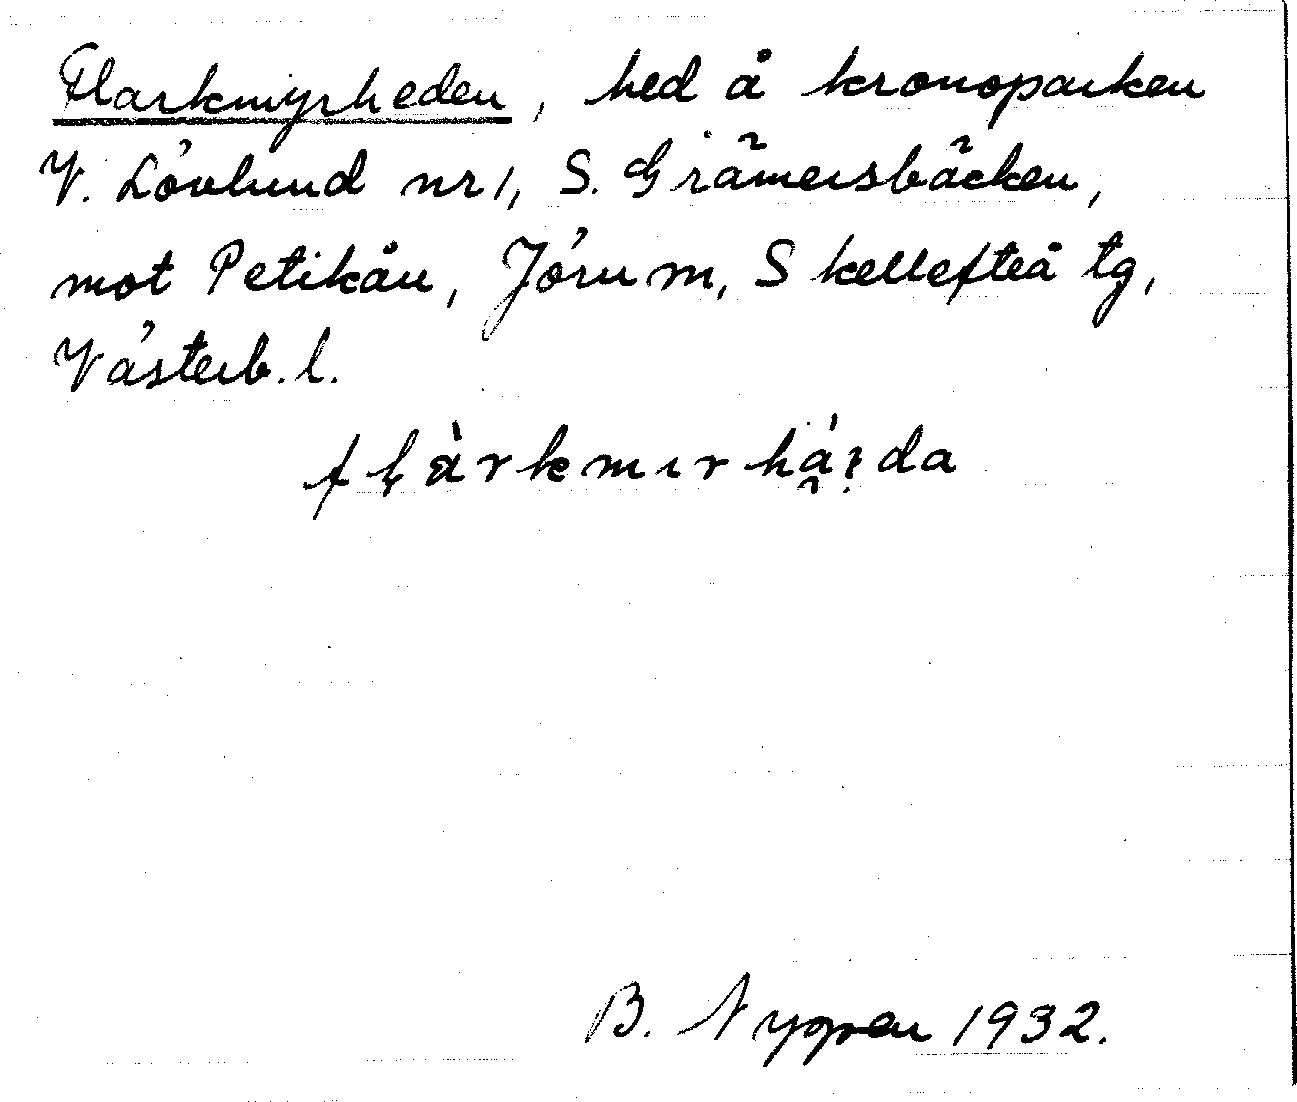 Flarkmyrheden, hed å kronoparken
V. Lövlund nr 1, S. Grämersbäcken,
mot Petikån, Jörn m, Skellefteå tg,
Västerb. l.
B. Nyppen 1932.